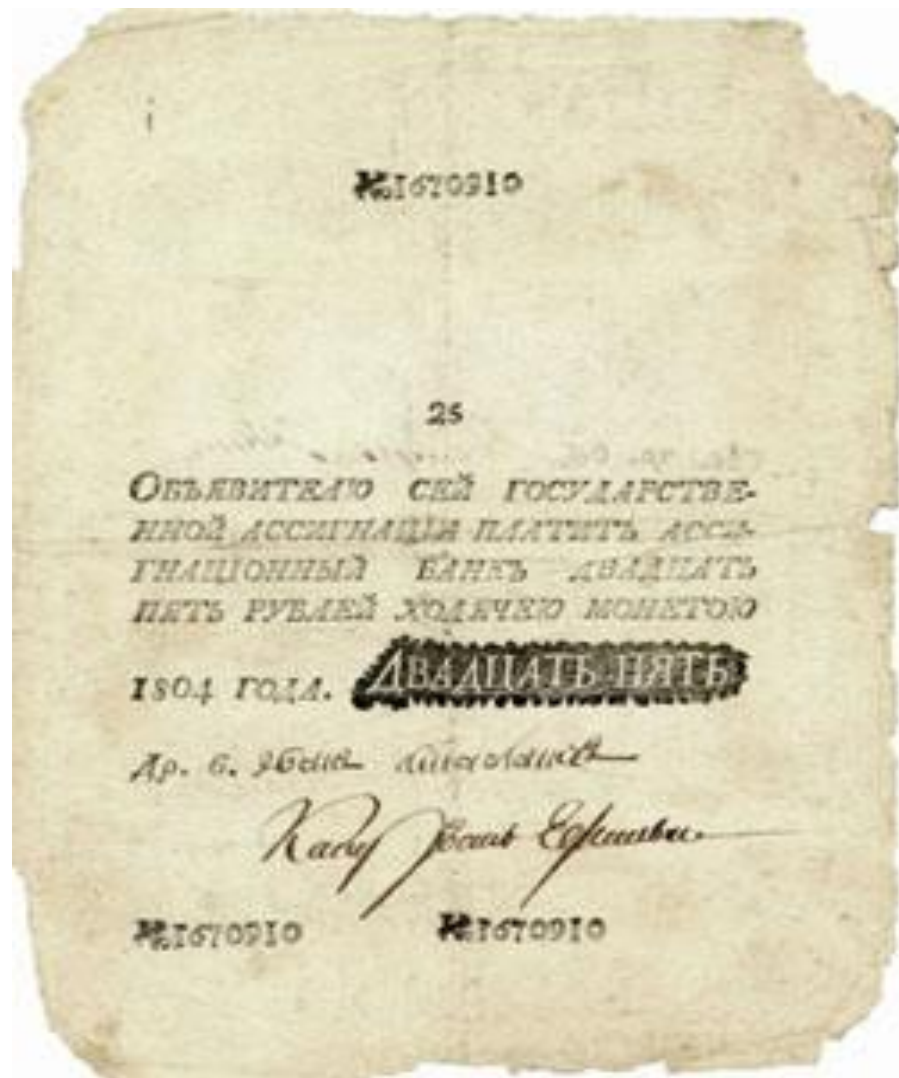 №1670910
25
ОБЪЯВИТЕЛЮ СЕЙ ГОСУДАРСТВЕ-
ННОЙ АССИГНАЦІИ ПЛАТИТЪ АССИ-
ГНАЦІОННЫЙ БАНКЪ ДВАДЦАТЬ
ПЯТЬ РУБЛЕЙ ХОДЯЧЕЮ МОНЕТОЮ
1804 ГОДА. ДВАДЦАТЬ ПЯТЬ
№1670910 №1670910